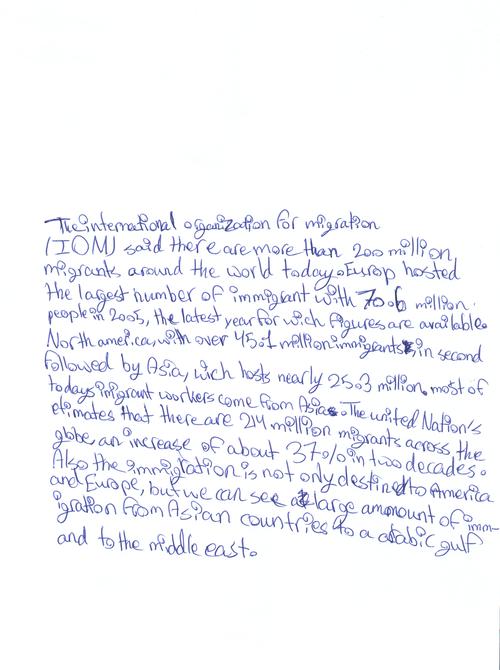 The international organization for migration
(IOM) said there are more than 200 million
migrants around the world today. Europ hosted
the largest number of immigrant with 70.6 million
people in 2005, the latest year for wich figures are available.
North america, with over 45.1 million immigrants, is in second
followed by Asia, wich hosts nearly 25.3 million, most of
todays imigrant workers come from Asia. The united Nation's
etimates that there are 214 million migrants across the
globe, an increase of about 37% in two decades.
Also the immigration is not only destined to America
and Europe, but we can see a large amount of imm-
igration from Asian countries to a arabic gulf
and to the middle east.